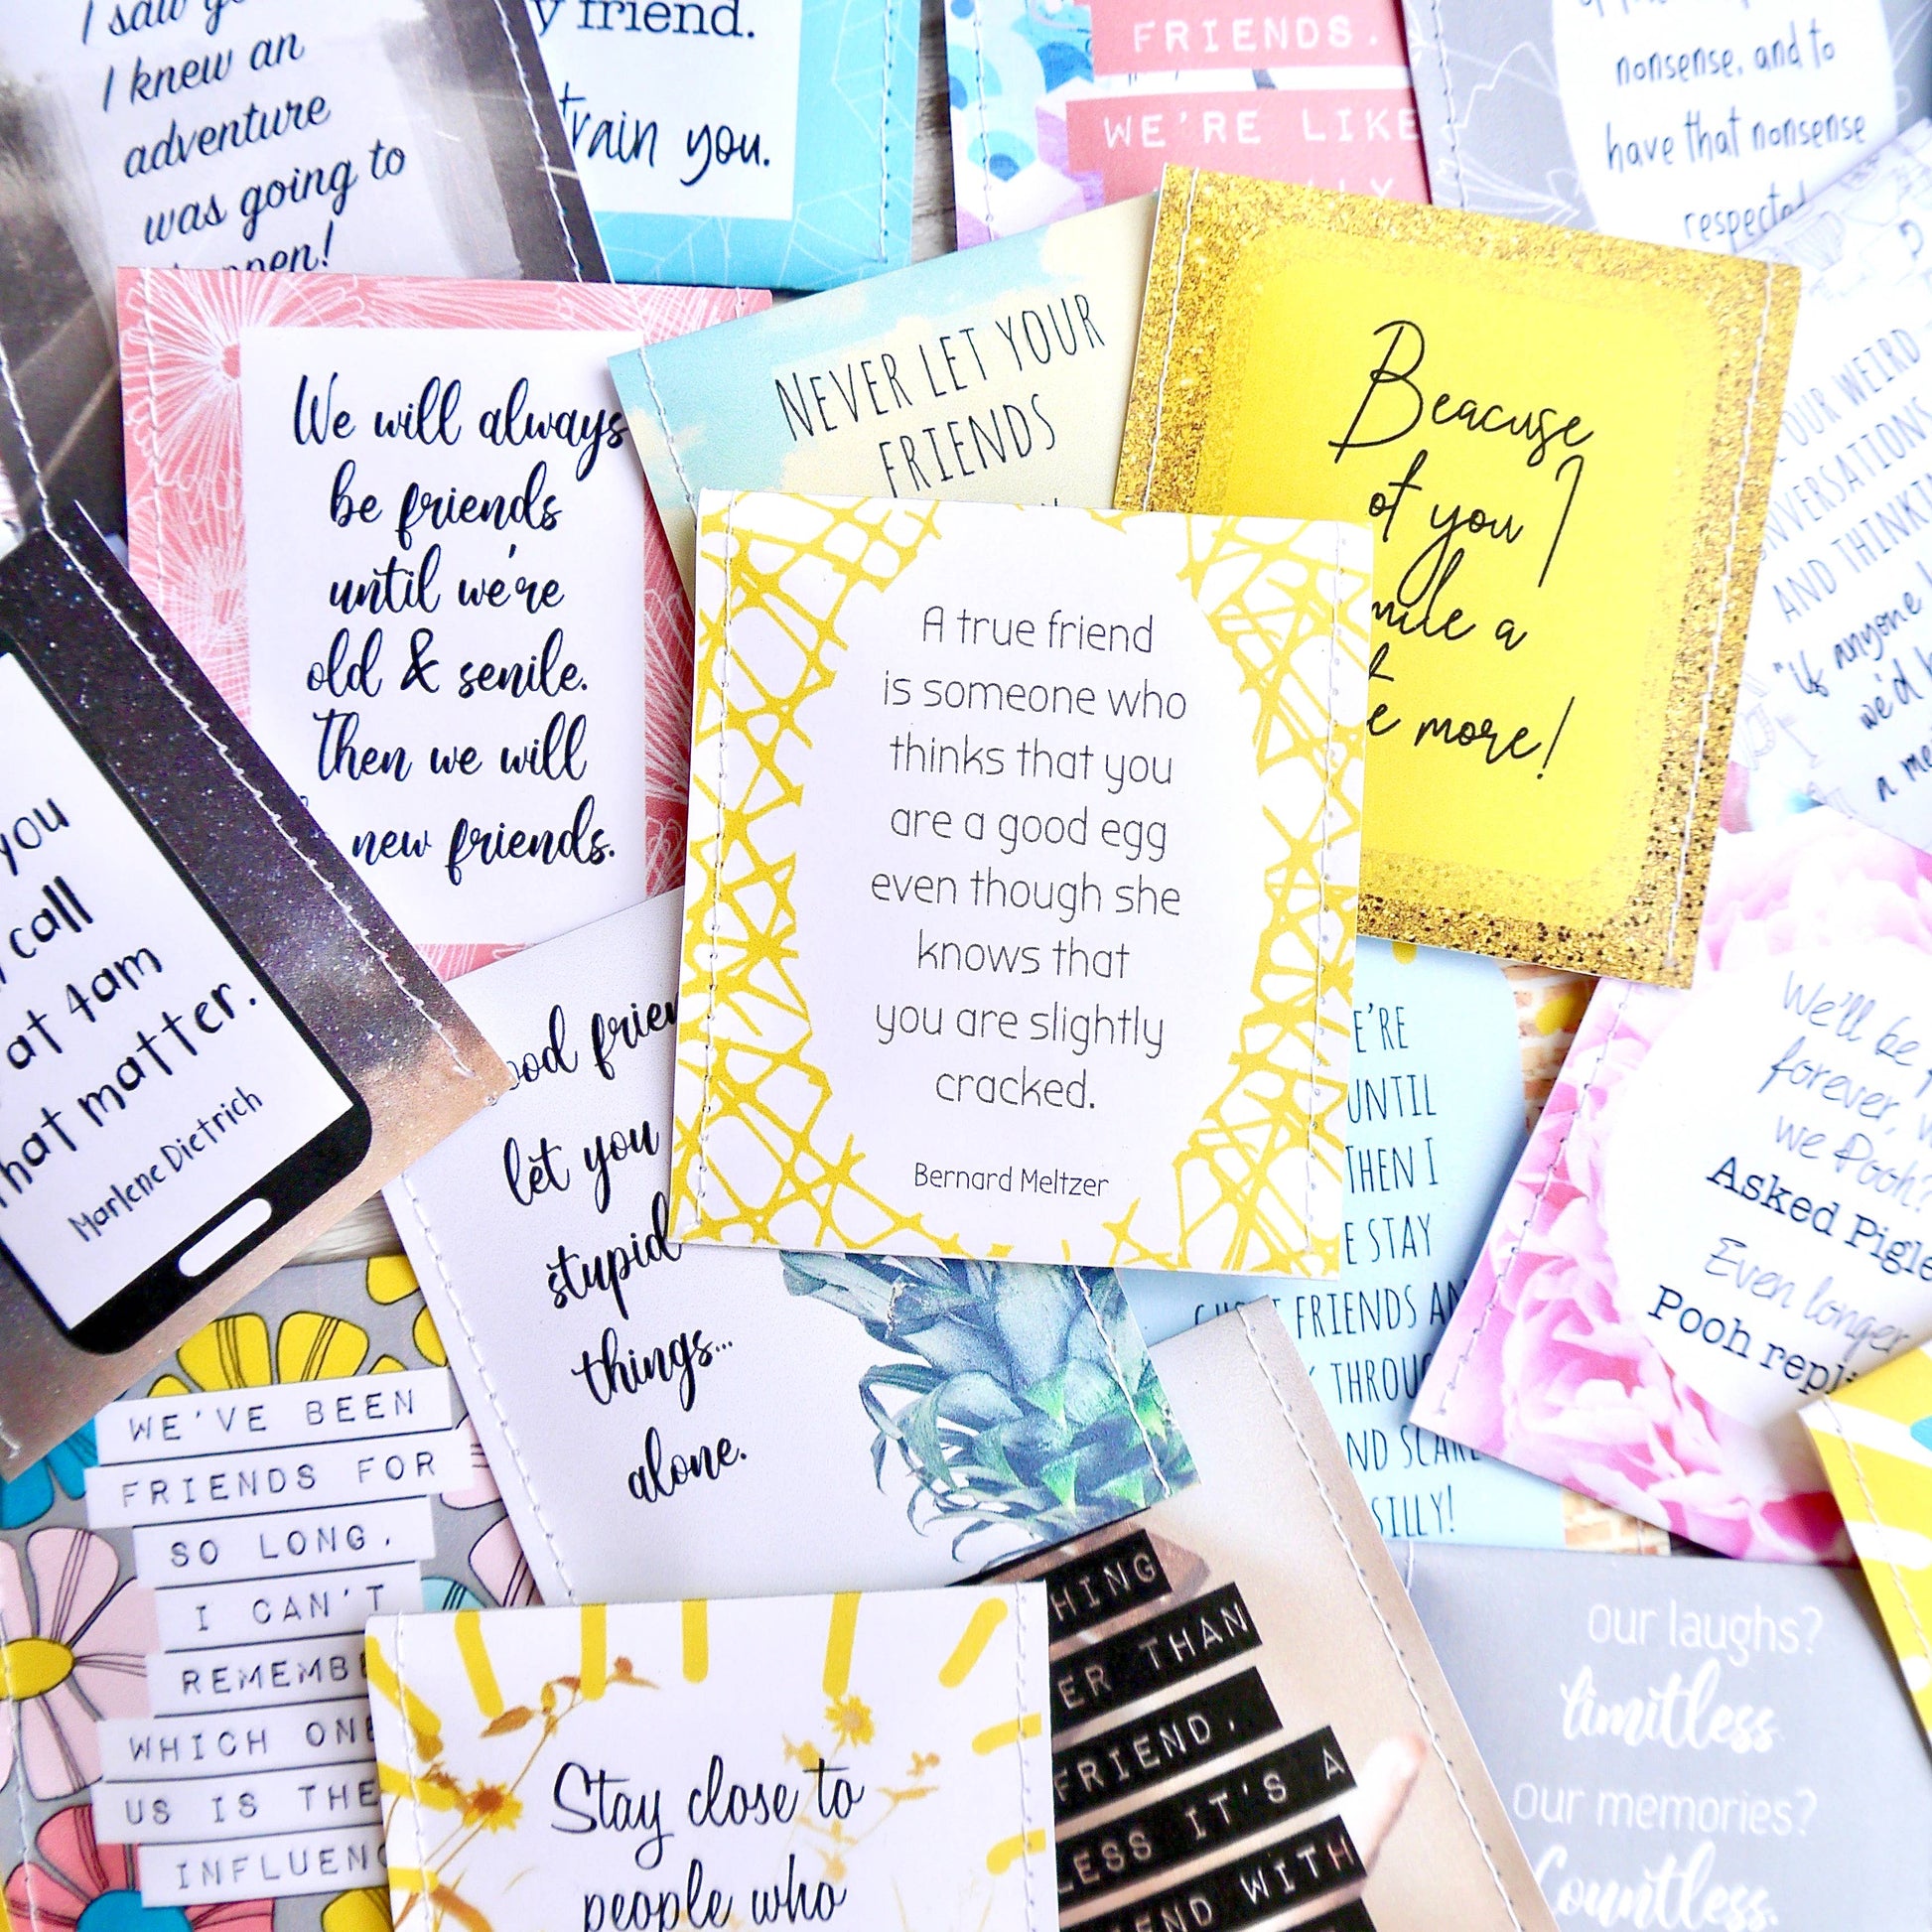 I knew an
adventure
was going to
friend.
train you.
FRIENDS.
WE'RE LIKE
nonsense, and to
have that nonsense
respected
We will always
be friends
until we're
old & senile.
Then we will
new friends.
NEVER LET YOUR
FRIENDS
Beacuse
of you I
a
more!
OUR WEIRD
AND
"if anyone
we'd
a
A true friend
is someone who
thinks that you
are a good egg
even though she
knows that
you are slightly
cracked.
Bernard Meltzer
you
call
at 4am
that matter.
Marlene Dietrich
let you
stupid
things...
alone.
UNTIL
THEN I
STAY
FRIENDS
SILLY!
We'll be
forever,
we Pooh?
Asked
Even longer
Pooh
WE'VE BEEN
FRIENDS FOR
SO LONG,
I CAN'T
WHICH ONE
US IS THE
Stay close to
people who
THAN
FRIEND.
IT'S A
WITH
our laughs?
limitless.
our memories?
Countless.